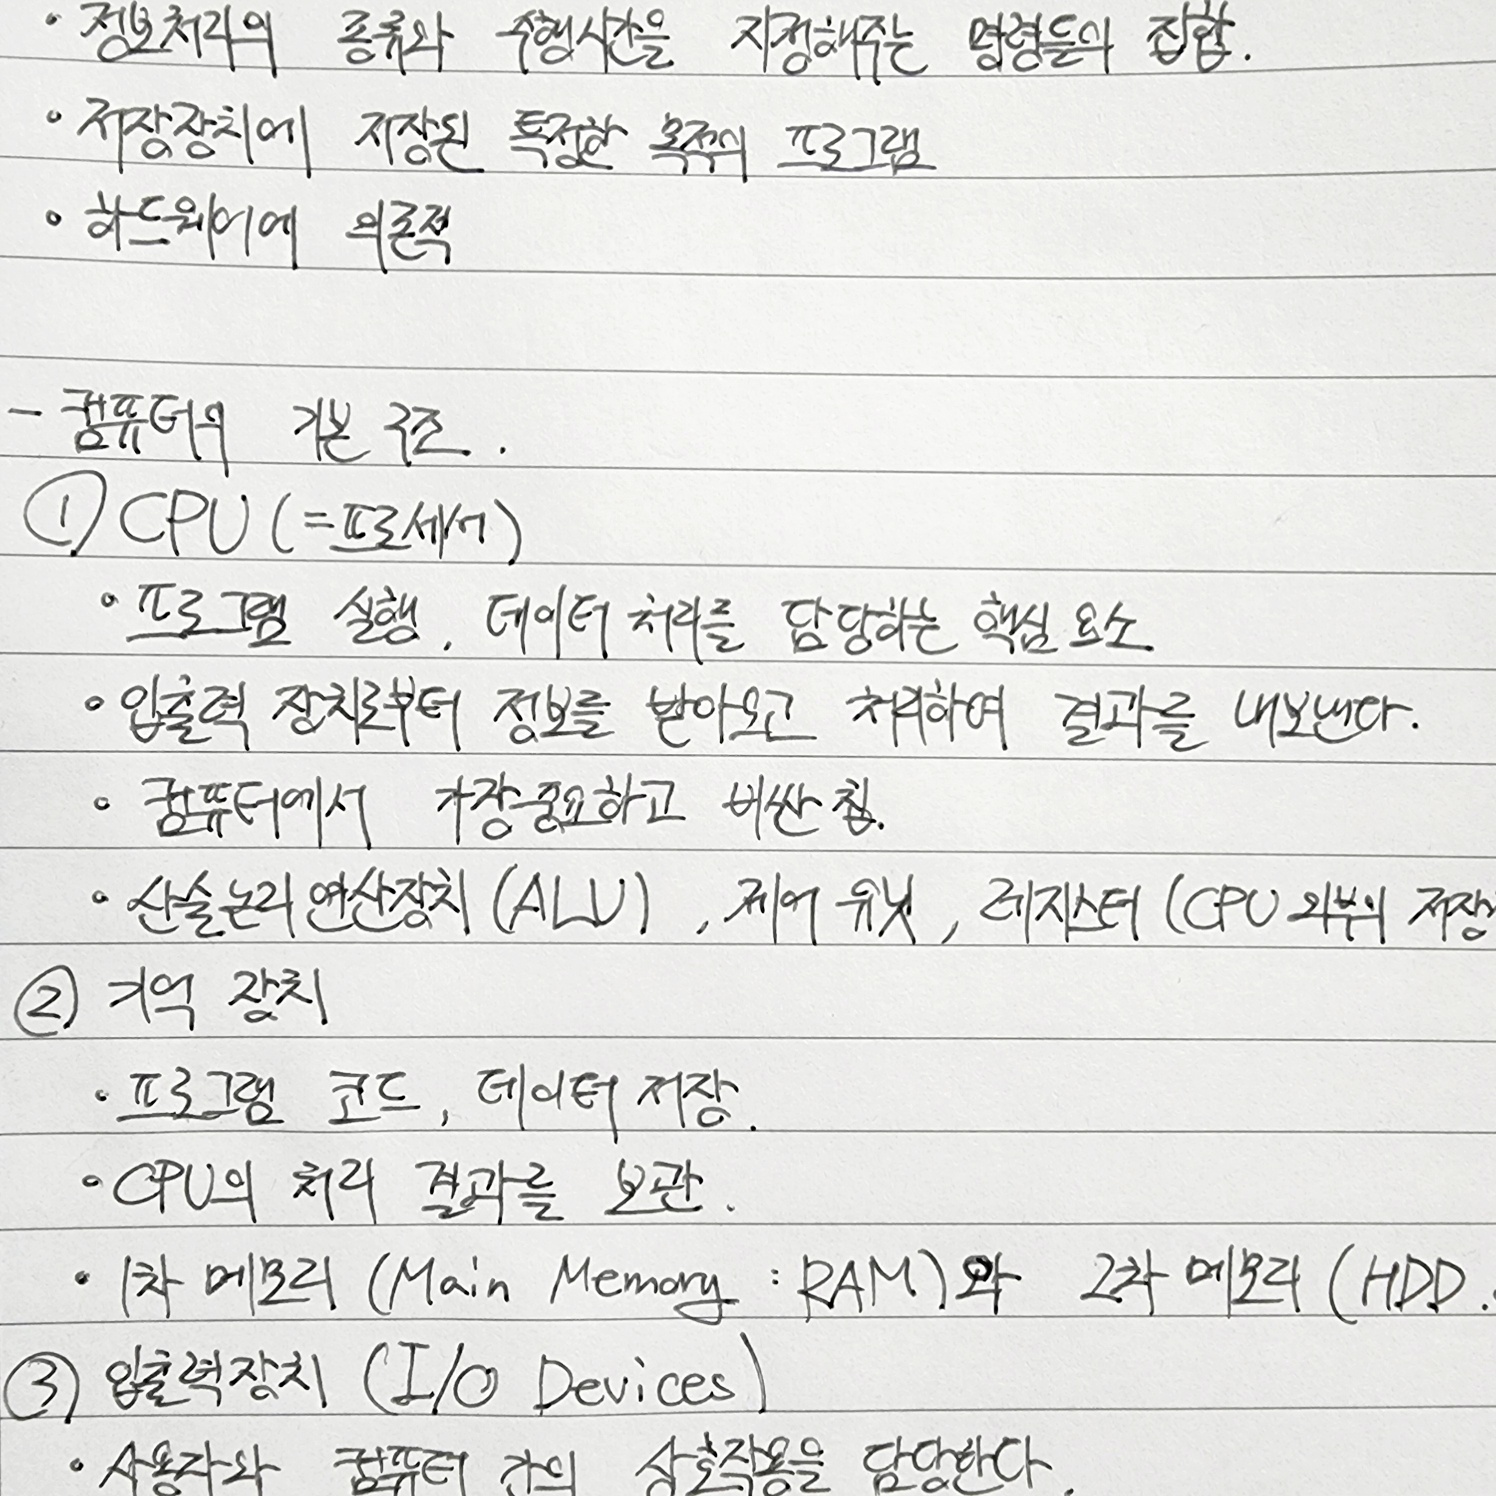 · 정보처리의 종류와 수행시간을 지정해주는 명령들의 집합.
· 저장장치에 저장된 특정한 목적의 프로그램
· 하드웨어에 의존적
- 컴퓨터의 기본 구조.
① CPU (=프로세서)
· 프로그램 실행, 데이터 처리를 담당하는 핵심 요소
· 입출력 장치로부터 정보를 받아오고 처리하여 결과를 내보낸다.
· 컴퓨터에서 가장 중요하고 비싼 칩.
· 산술논리연산장치 (ALU), 제어 유닛, 레지스터 (CPU 외부의 저장
② 기억 장치
· 프로그램 코드, 데이터 저장.
· CPU의 처리 결과를 보관.
· 1차 메모리 (Main Memory : RAM)와 2차 메모리 (HDD.
③ 입출력장치 (I/O Devices)
· 사용자와 컴퓨터 간의 상호작용을 담당한다.